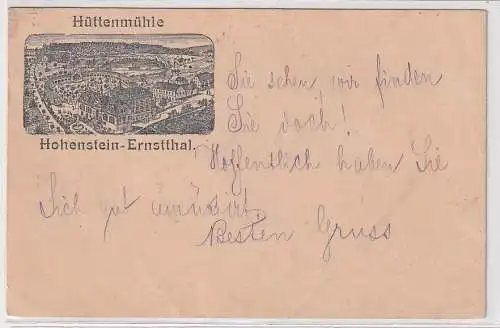 Hüttenmühle
Hohenstein-Ernstthal.
Sie sehen wir finden
Sie doch!
Hoffentlich haben Sie
Sich gut amüsirt.
Besten Gruss